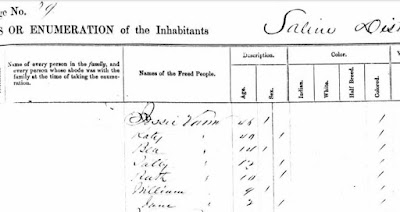 ge No. 29
S OR ENUMERATION of the Inhabitants Saline Dis
Name of every person in the family, and every person whose abode was with the family at the time of taking the enumeration.
Names of the Freed People.
Description.
Age.
Sex.
Color.
Indian.
White.
Half Breed.
Colored.
Vann
Katy 1
Sally
Ruth 10 1
William 9 1
Jane 1